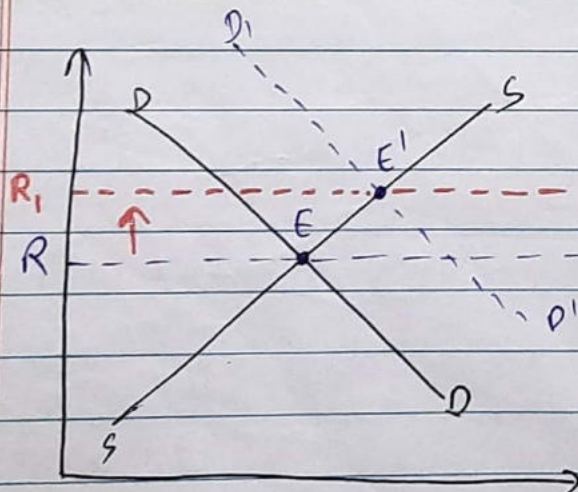 D1
D
S
E'
R1
E
R
D'
S
D